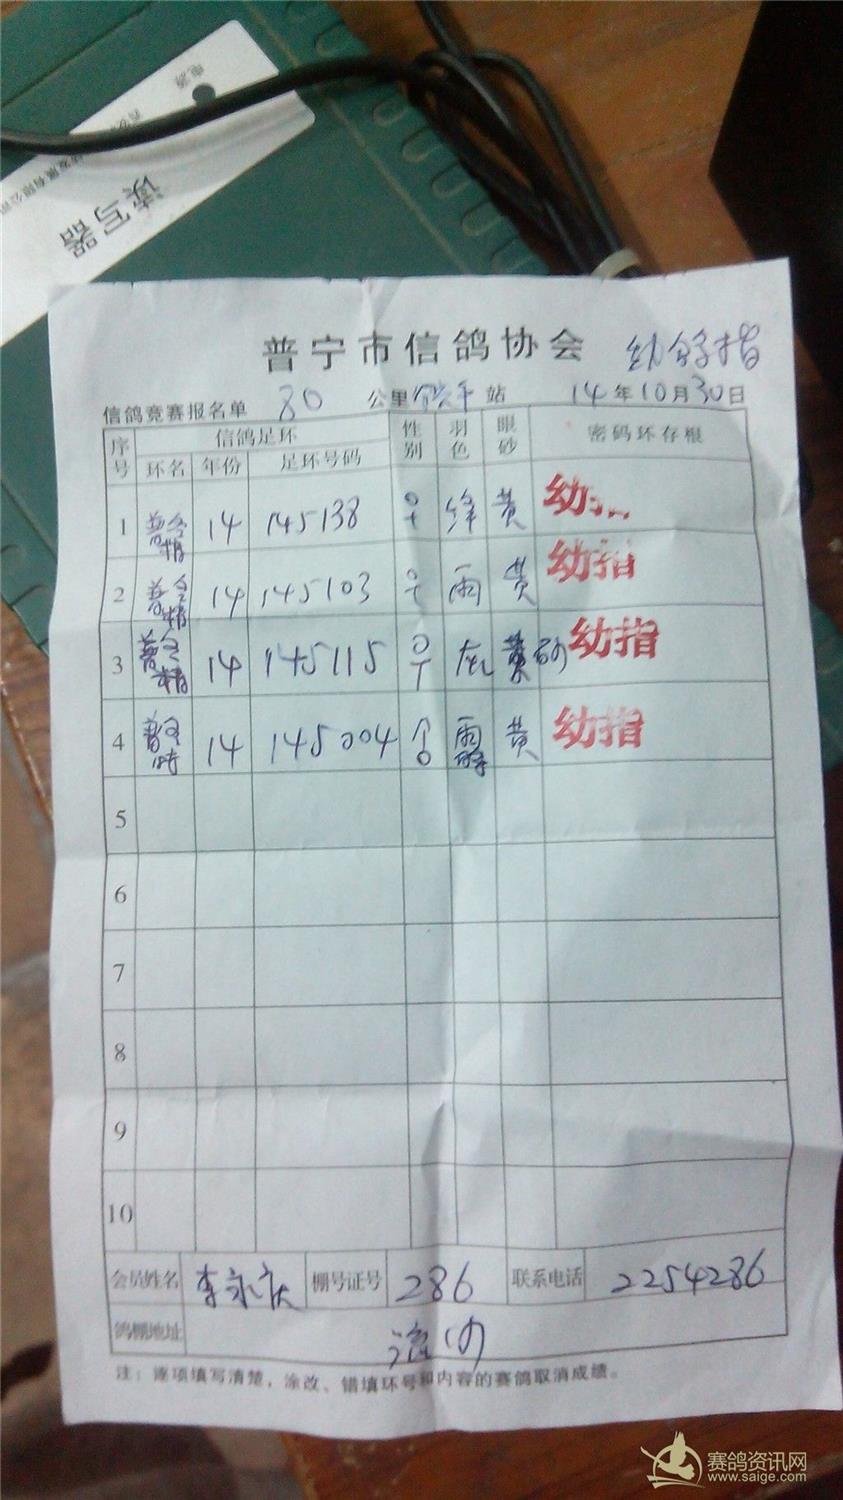 电源
发展有限公司
读写器
普宁市信鸽协会 幼鸽指
信鸽竞赛报名单 80 公里 站 14年10月30日
序号 信鸽足环 性别 羽色 眼砂 密码环存根
环名 年份 足环号码
1 14 145138 ♀ 绛 黄 幼
2 14 145103 ♀ 雨 黄 幼指
3 14 145115 ♀ 灰 砂 幼指
4 14 145004 雨 黄 幼指
5
6
7
8
9
10
会员姓名 李永庆 棚号证号 286 联系电话 2254286
鸽棚地址
注：逐项填写清楚，涂改、错填环号和内容的赛鸽取消成绩。
赛鸽资讯网
www.saige.com